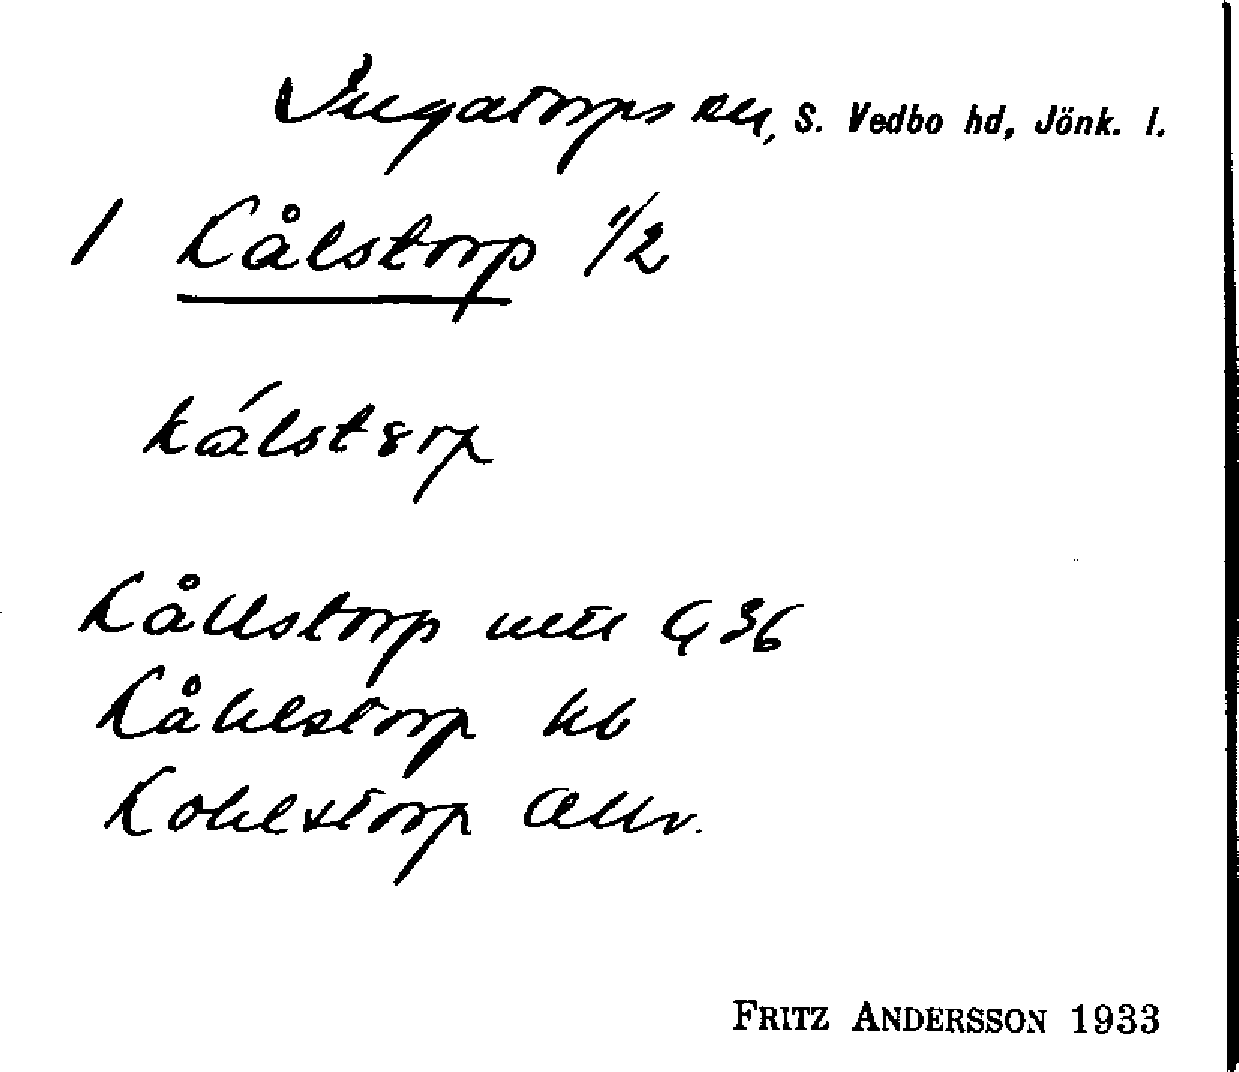 Ingatorps sn, S. Vedbo hd, Jönk. l.
1 Kålstorp 1/2
kálstərp
Kållstorp mtl G 36
Kåhlstorp kb
Kohlstorp Allv.
FRITZ ANDERSSON 1933